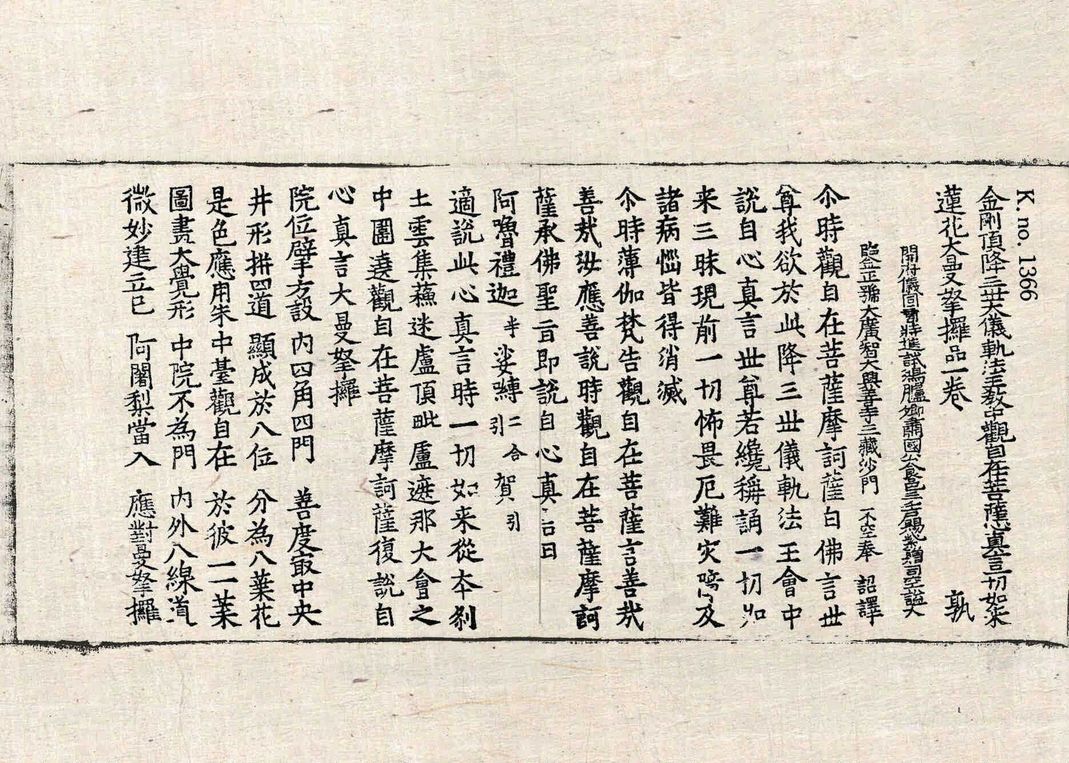 K. no. 1366
金剛頂降三世大儀軌法王教中觀自在菩薩心真言一切如來
蓮花大曼拏攞品一卷 孰
開府儀同三司特進試鴻臚卿肅國公食邑三千戶賜紫贈司空謚大
鑒正號大廣智大興善寺三藏沙門 不空奉 詔譯
尒時觀自在菩薩摩訶薩白佛言世
尊我欲於此降三世儀軌法王會中
說自心真言世尊若纔稱誦一切如
来三昧現前一切怖畏厄難灾障及
諸病惱皆得消滅
尒時薄伽梵告觀自在菩薩言善哉
善哉汝應善說時觀自在菩薩摩訶
薩承佛聖旨即說自心真言曰
阿嚕禮迦 半娑嚩 二合引 賀 引
適說此心真言時一切如来從本刹
土雲集蘓迷盧頂毗盧遮那大會之
中圍遶觀自在菩薩摩訶薩復說自
心真言大曼拏攞
院位擘方設 內四角四門 善度㝡中央
井形拼四道 顯成於八位 分為八葉花
是色應用朱 中臺觀自在 於彼一一葉
圖畫大覺形 中院不為門 內外八線道
微妙建立已 阿闍梨當入 應對曼拏攞